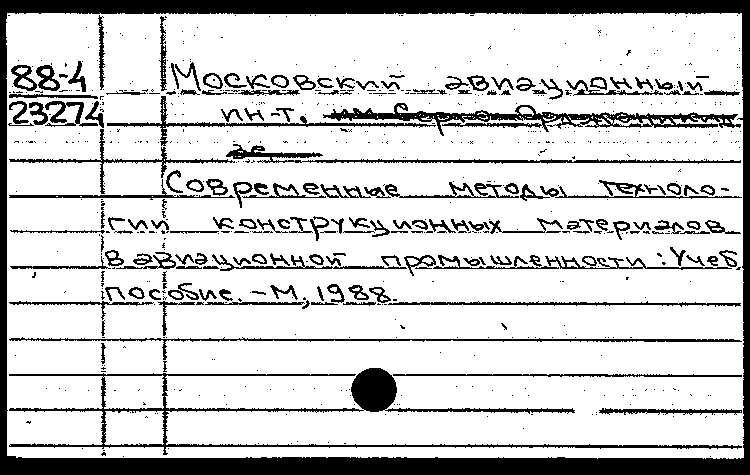 88-4 Московский авиационный
23274 ин-т. им Серго Орджоникид
зе
Современные методы техноло-
гии конструкционных материалов
в авиационной промышленности: Учеб.
пособие. - М, 1988.